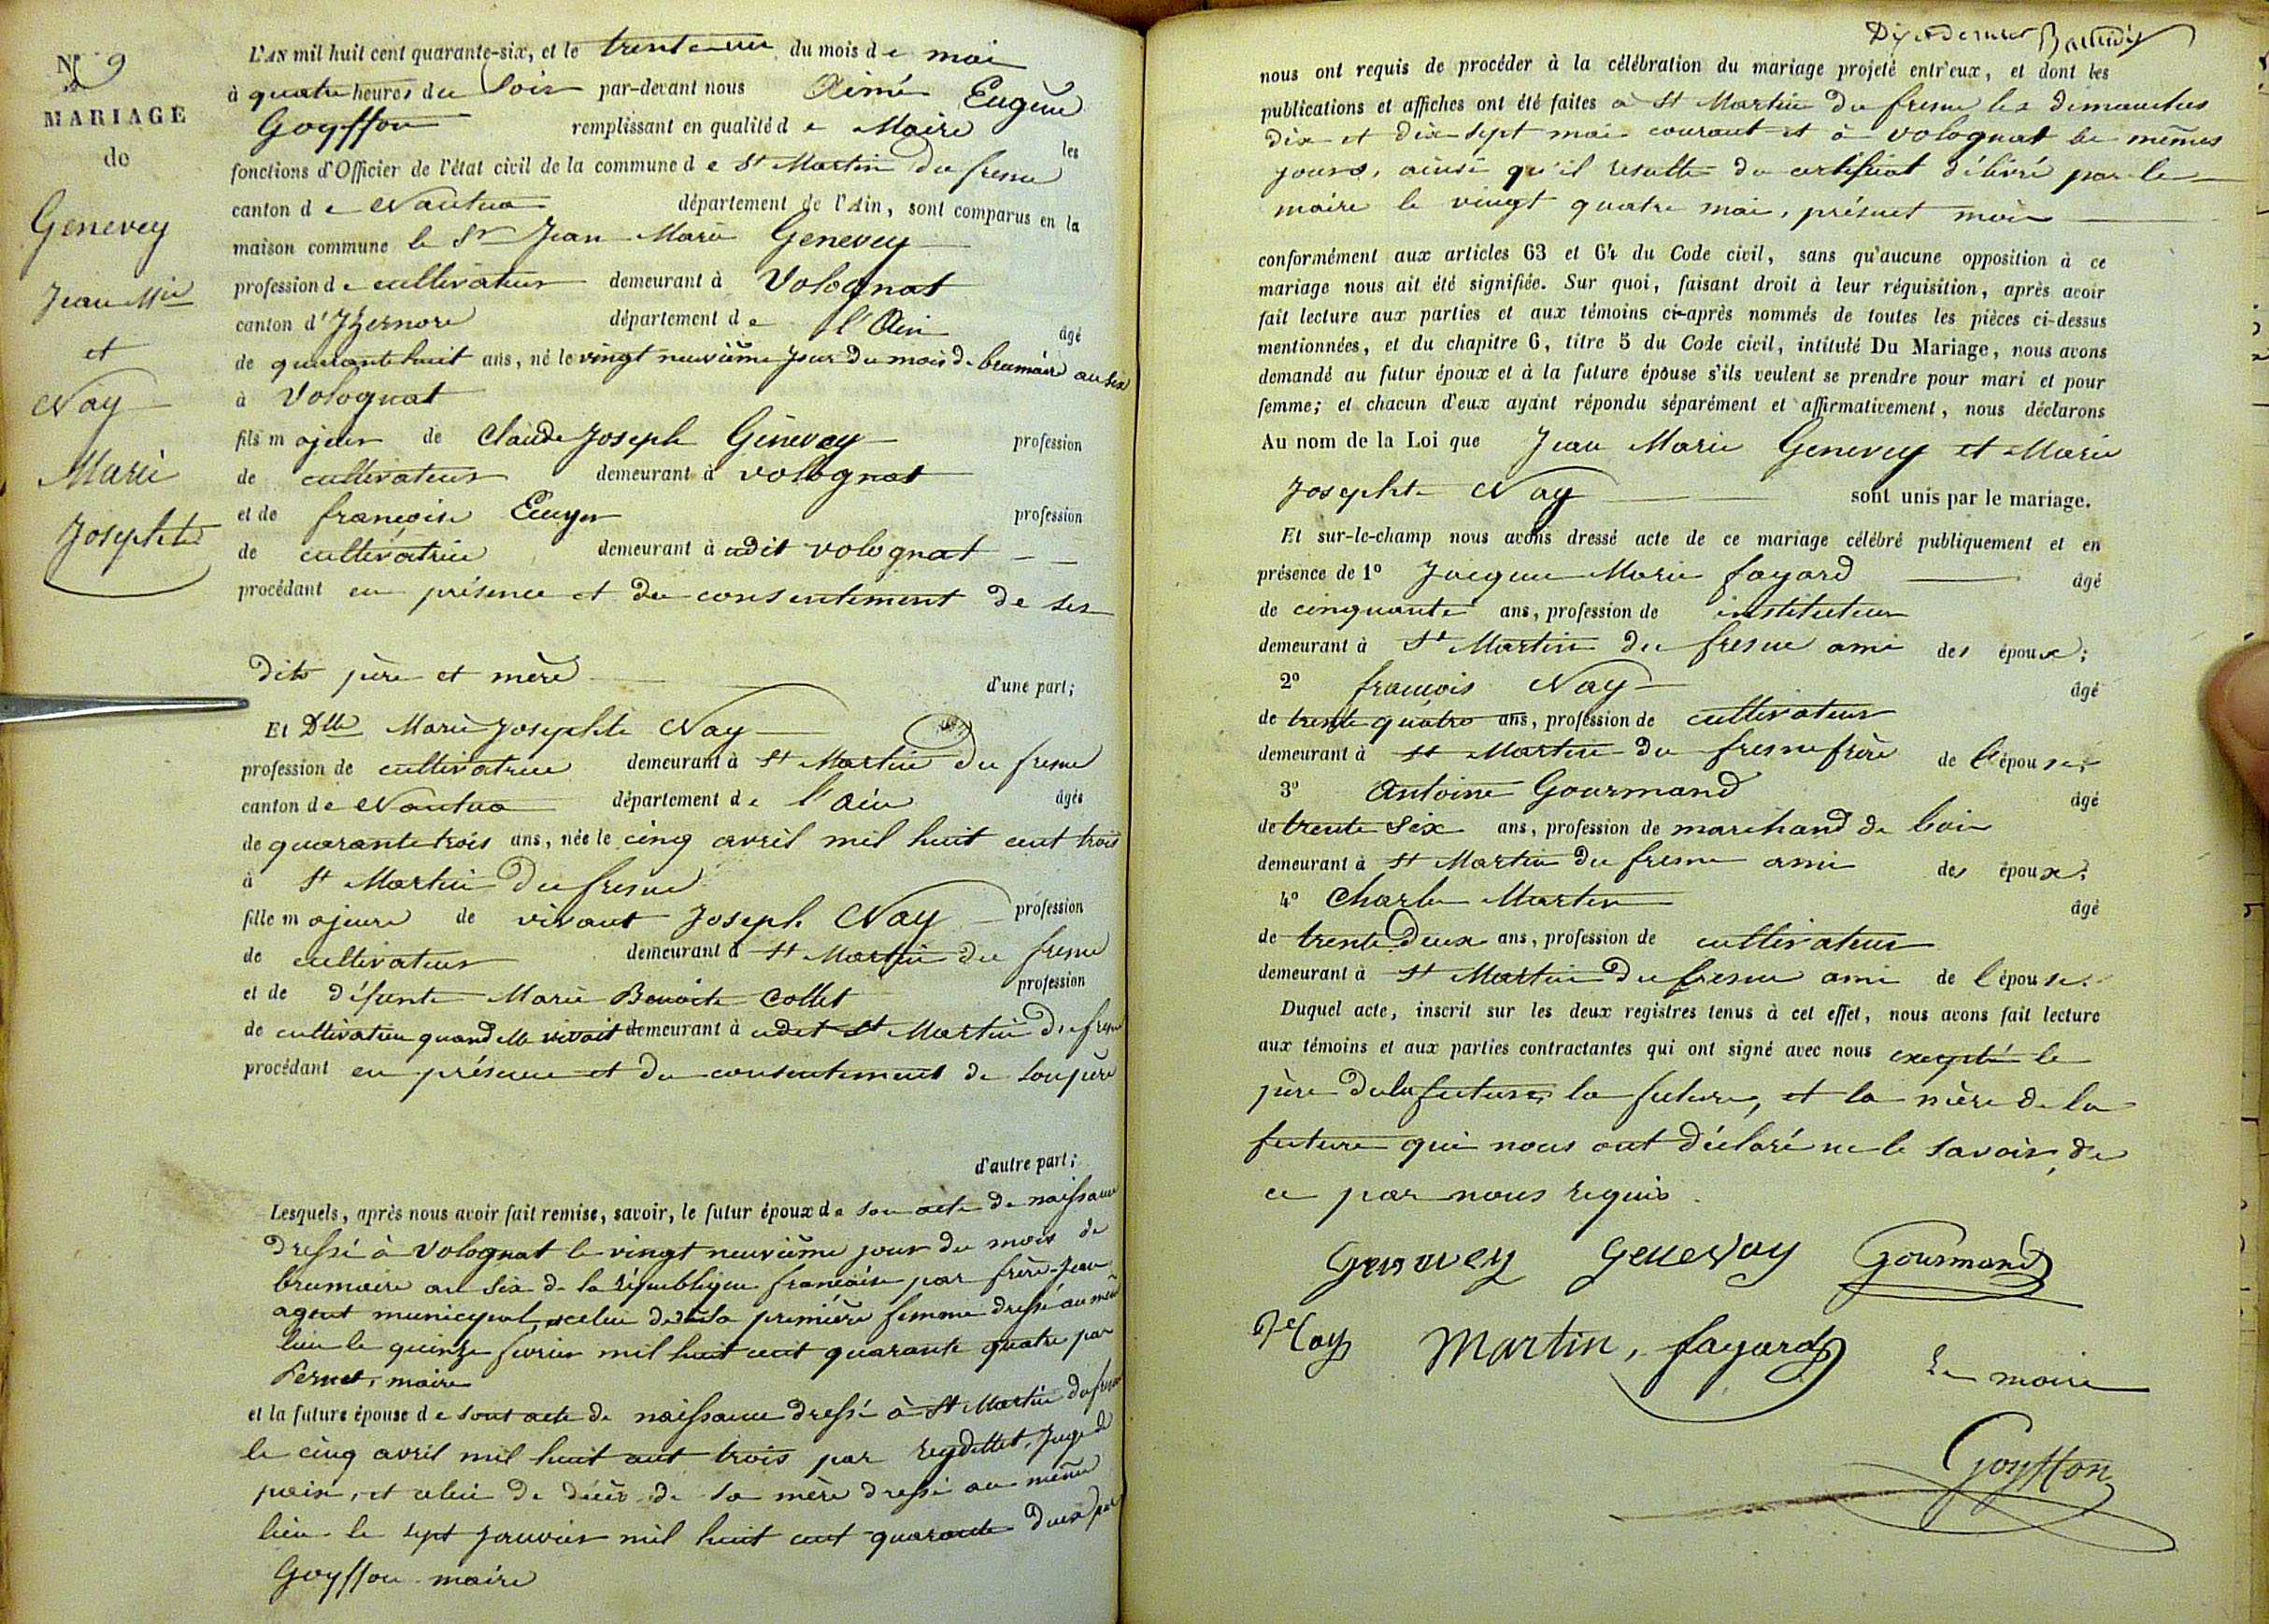 N° 9
MARIAGE
de
Genevey
Jean Mie
et
Nay
Marie
Josephte
L'AN mil huit cent quarante-six, et le trente un du mois de mai
à quatre heures du Soir par-devant nous Aimé Eugène
Goyffon remplissant en qualité de Maire les
fonctions d'Officier de l'état civil de la commune de St Martin du fresne
canton de Nantua département de l'Ain, sont comparus en la
maison commune le Sr Jean Marie Genevey
profession de cultivateur demeurant à Volognat
canton d'Izernore département de l'Ain âgé
de quarante huit ans, né le vingt neuvième jour du mois de brumaire an six
à Volognat
fils majeur de Claude Joseph Genevey profession
de cultivateur demeurant à volognat
et de françoise Ecuyer profession
de cultivatrice demeurant à udit volognat
procédant en présence et du consentement de ses
dits père et mère d'une part;
Et Dlle Marie Josephte Nay
profession de cultivatrice demeurant à St Martin du fresne
canton de Nantua département de l'Ain âgée
de quarante trois ans, née le cinq avril mil huit cent trois
à St Martin du fresne
fille majeure de vivant Joseph Nay profession
de cultivateur demeurant à St Martin du fresne
et de défunte Marie Benoite Collet profession
de cultivatrice quand elle vivait demeurant à udit St Martin du fresne
procédant en présence et du consentement de son père
d'autre part;
Lesquels, après nous avoir fait remise, savoir, le futur époux de son acte de naissance
dressé à Volognat le vingt neuvième jour du mois de
brumaire an six de la république française par frère-Jean
agent municipal, celui de sa première femme dressé au même
lieu le quinze fevrier mil huit cent quarante quatre par
Pernet, maire
et la future épouse de son acte de naissance dressé à St Martin du fresne
le cinq avril mil huit cent trois par reydellet, Juge de
paix, et celui de décès de sa mère dressé au même
lieu le sept janvier mil huit cent quarante deux par
Goyffon maire
nous ont requis de procéder à la célébration du mariage projeté entr'eux, et dont les
publications et affiches ont été faites à St Martin du fresne les dimanches
dix et dix sept mai courant et à volognat les mêmes
jours, ainsi qu'il resulte du certificat délivré par le
maire le vingt quatre mai, présent mois
conformément aux articles 63 et 64 du Code civil, sans qu'aucune opposition à ce
mariage nous ait été signifiée. Sur quoi, faisant droit à leur réquisition, après avoir
fait lecture aux parties et aux témoins ci-après nommés de toutes les pièces ci-dessus
mentionnées, et du chapitre 6, titre 5 du Code civil, intitulé Du Mariage, nous avons
demandé au futur époux et à la future épouse s'ils veulent se prendre pour mari et pour
femme; et chacun d'eux ayant répondu séparément et affirmativement, nous déclarons
Au nom de la Loi que Jean Marie Genevey et Marie
Josephte Nay sont unis par le mariage.
Et sur-le-champ nous avons dressé acte de ce mariage célébré publiquement et en
présence de 1° Jacques Marie fayard âgé
de cinquante ans, profession de instituteur
demeurant à St Martin du fresne ami des époux;
2° françois Nay âgé
de trente quatre ans, profession de cultivateur
demeurant à St Martin du fresne frère de l'épouse;
3° Antoine Gourmand âgé
de trente Six ans, profession de marchand de bois
demeurant à St Martin du fresne ami des époux;
4° Charles Martin âgé
de trente deux ans, profession de cultivateur
demeurant à St Martin du fresne ami de l'épouse.
Duquel acte, inscrit sur les deux registres tenus à cet effet, nous avons fait lecture
aux témoins et aux parties contractantes qui ont signé avec nous excepté le
père de la future, la future, et la mère de la
future qui nous ont déclaré ne le savoir, de
ce par nous requis.
Genevey Genevay Gourmand
Nay Martin, fayard Le maire
Goyffon